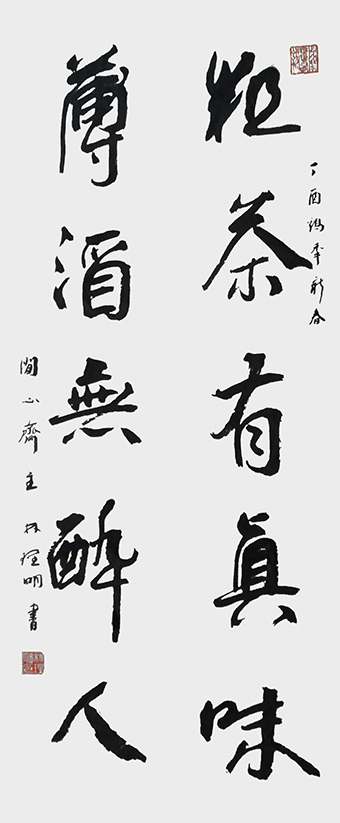 丁酉鸡年新春
粗茶有眞味
薄酒無醉人
心齋主 林明書